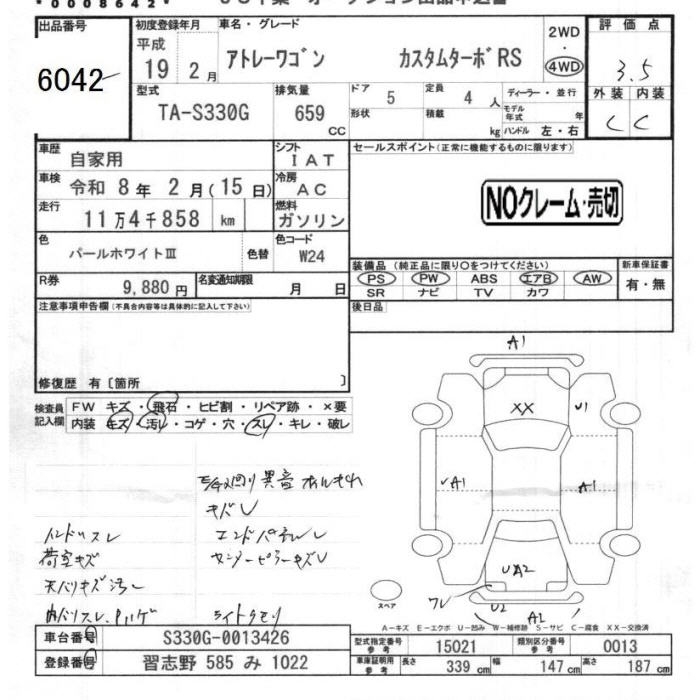 *0008642*
出品番号
6042
初度登録年月
平成
19 2月
車名・グレード
アトレーワゴン カスタムターボRS
2WD
・
4WD
評価点
3.5
外装 内装
C C
型式
TA-S330G
排気量
659
CC
ドア
5
定員
4 人
形状
積載
kg
ディーラー・並行
モデル年式 年
ハンドル 左・右
車歴
自家用
シフト
IAT
車検
令和 8年 2月(15日)
冷房
AC
走行
11万4千858 km
燃料
ガソリン
色
パールホワイトⅢ
色替
色コード
W24
R券
9,880円
名変通知期限
月 日
セールスポイント(正常に機能するものに限ります)
NOクレーム・売切
装備品(純正品に限り○をつけてください)
PS PW ABS エアB AW
SR ナビ TV カワ
新車保証書
有・無
後日品
注意事項申告欄(不具合内容等は具体的に記入して下さい)
修復歴 有〔箇所 〕
検査員
記入欄
FW キズ・飛石・ヒビ割・リペア跡・×要
内装 キズ・汚レ・コゲ・穴・スレ・キレ・破レ
A1
XX
U1
A1
A1
UA2
U2
A1
キズU
エンドパネルU
センターピラーキズU
ハンドルスレ
荷室キズ
天バリキズ汚レ
内バリスレ
ライトクモリ
スペア
A-キズ E-エクボ U-凹み W-補修跡 S-サビ C-腐食 XX-交換済
車台番号
S330G-0013426
登録番号
習志野 585 み 1022
型式指定番号
参考
15021
類別区分番号
参考
0013
車庫証明用
参考
長さ 339cm 幅 147cm 高さ 187cm